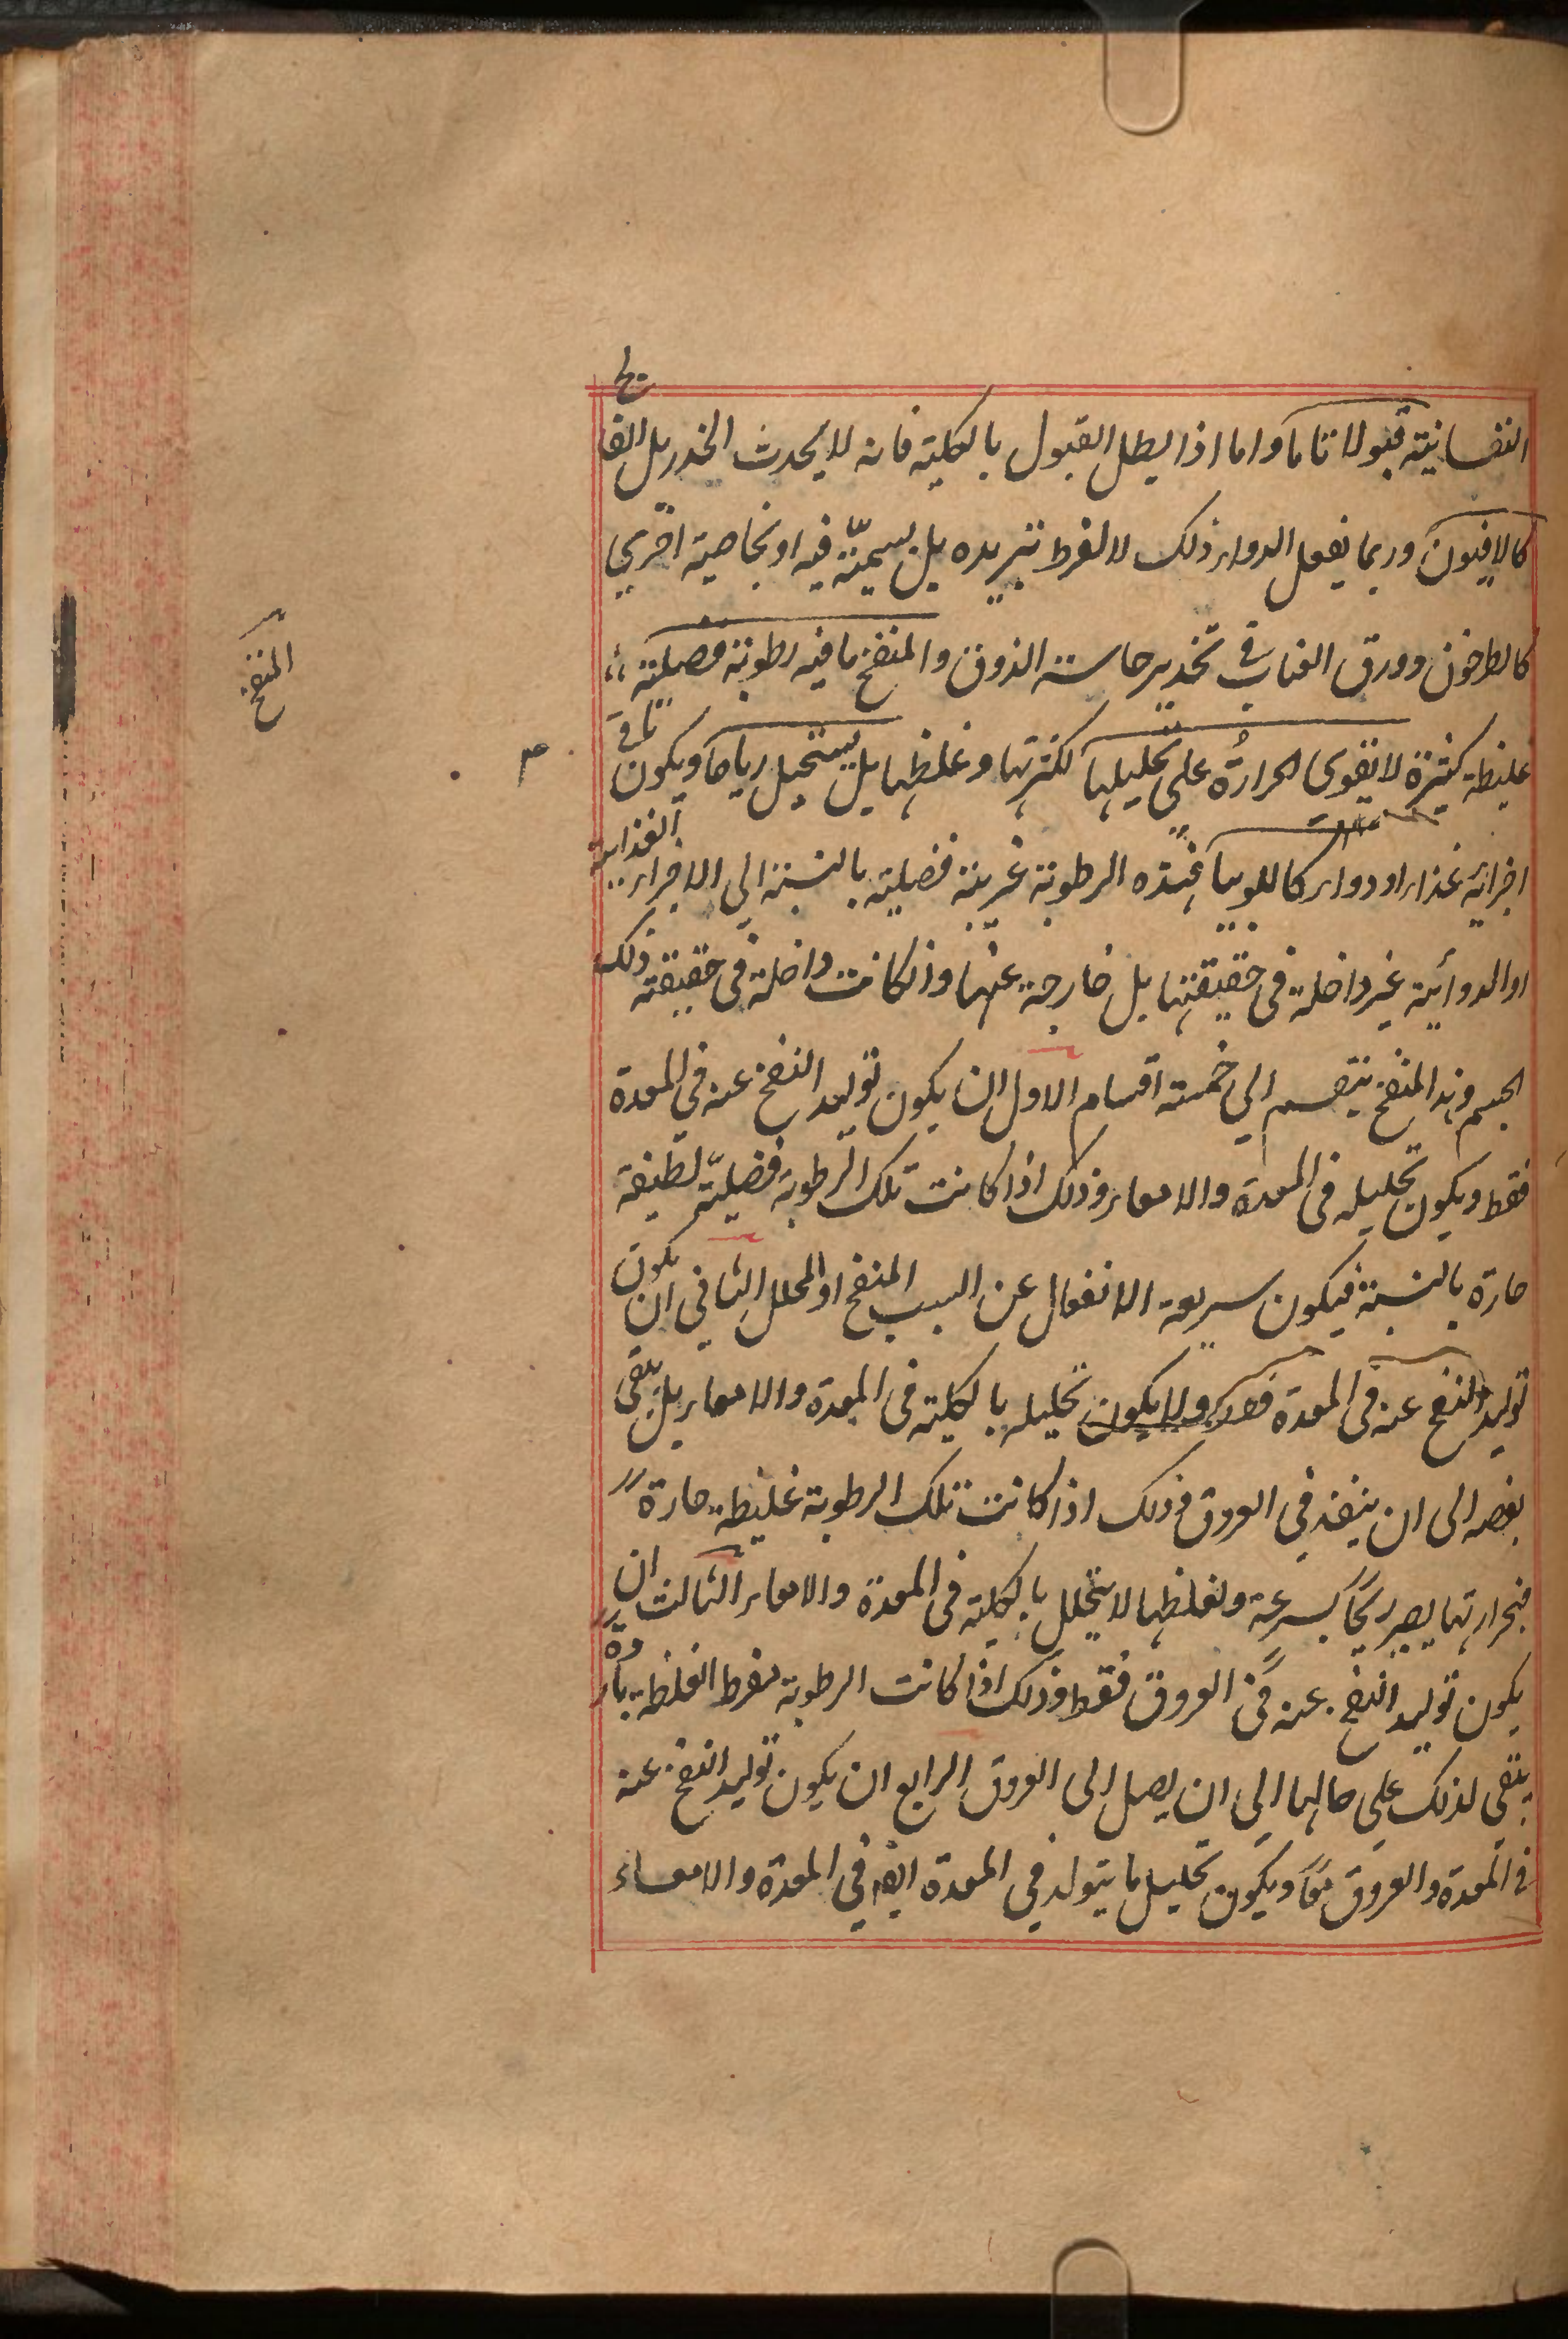 النفسانية قبولا تاما واما اذا بطل القبول بالكلية فانه لا يحدث الخدر بل الفالج
كالافيون وربما يفعل الدواء ذلك لا لفرط تبريده بل بسمّيّة فيه او بخاصية اخرى
كالطرخون وورق العناب في تخدير حاسة الذوق والمنفخ ما فيه رطوبة فضلية
غليظة كثيرة لا يقوى الحرارة على تحليلها لكثرتها وغلظها بل يستحيل رياحا ويكون باقي
اجزائه غذاء او دواء كاللوبيا فهذه الرطوبة غريبة فضلية بالنسبة الى الاجزاء الغذائية
او الدوائية غير داخلة في حقيقتها بل خارجة عنها وان كانت داخلة في حقيقة ذلك
الجسم وهذا المنفخ ينقسم الى خمسة اقسام الاول ان يكون توليد النفخ عنه في المعدة
فقط ويكون تحليله في المعدة والامعاء وذلك اذا كانت تلك الرطوبة فضلية لطيفة
حارة بالنسبة فيكون سريعة الانفعال عن السبب المنفخ او المحلل الثاني ان يكون
توليد النفخ عنه في المعدة فقط ولا يكون تحليله بالكلية في المعدة والامعاء بل يبقى
بعضه الى ان ينفذ في العروق وذلك اذا كانت تلك الرطوبة غليظة حارة
فبحرارتها يصير ريحًا بسرعة ولغلظها لا يتحلل بالكلية في المعدة والامعاء الثالث ان
يكون توليد النفخ عنه في العروق فقط وذلك اذا كانت الرطوبة مفرط الغلظة باردة
يبقى لذلك على حالها الى ان يصل الى العروق الرابع ان يكون توليد النفخ عنه
في المعدة والعروق معًا ويكون تحليل ما يتولد في المعدة ايضا في المعدة والامعاء
المنفخ